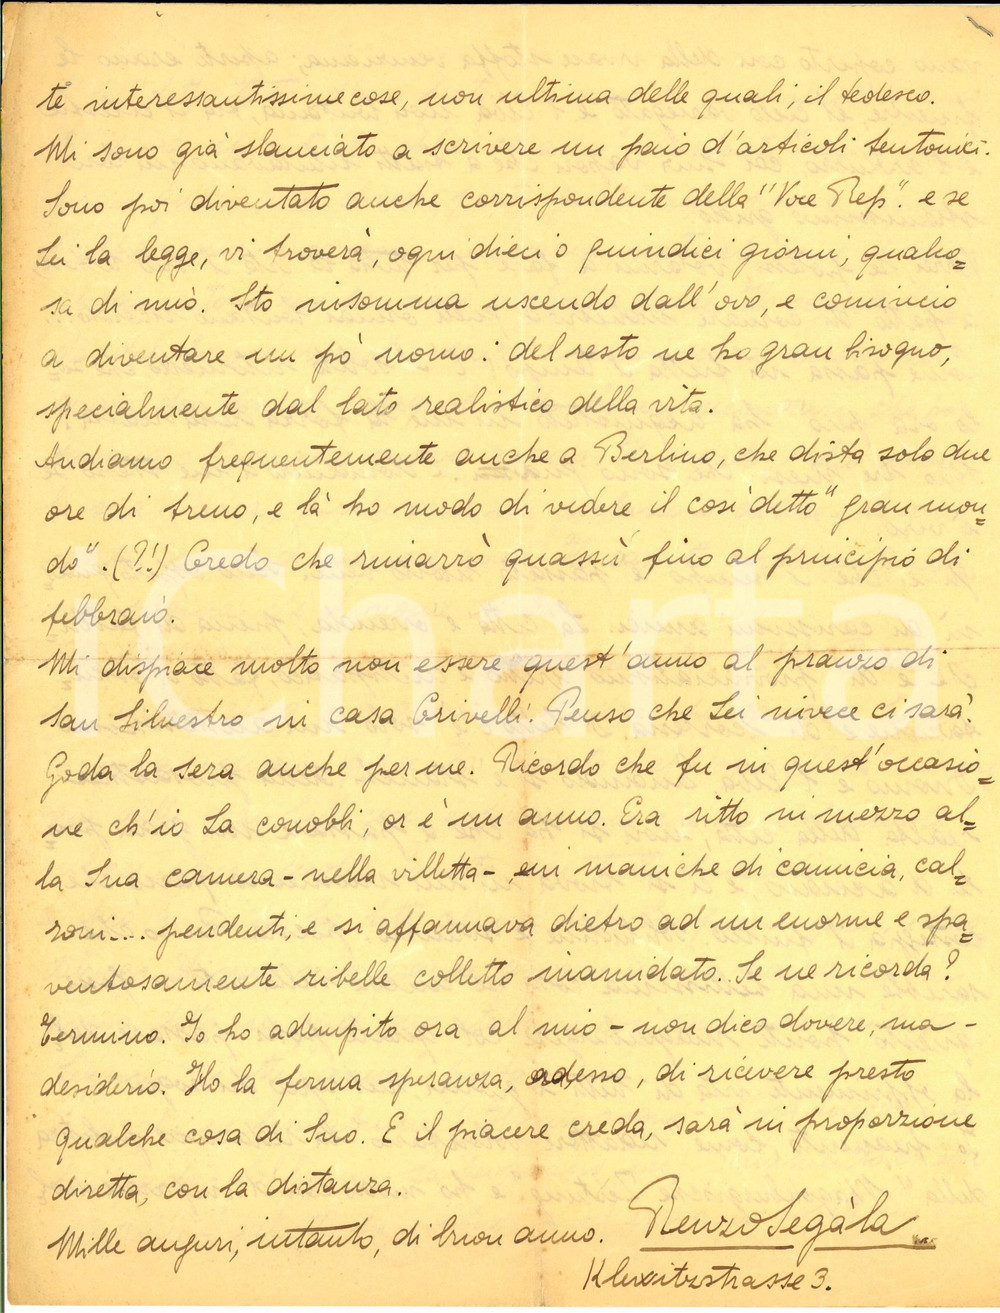 te interessantissime cose, non ultima delle quali, il tedesco.
Mi sono già slanciato a scrivere un paio d'articoli teutonici.
Sono poi diventato anche corrispondente della "Voce Rep". e se
Lei la legge, vi troverà, ogni dieci o quindici giorni, qualco=
sa di mio. Sto insomma uscendo dall'ovo, e comincio
a diventare un pò uomo: del resto ne ho gran bisogno,
specialmente dal lato realistico della vita.
Andiamo frequentemente anche a Berlino, che dista solo due
ore di treno, e là ho modo di vedere il così detto "gran mon=
do". (?!) Credo che rimarrò quassù fino al principio di
febbraio.
Mi dispiace molto non essere quest'anno al pranzo di
San Silvestro in casa Crivelli. Penso che Lei invece ci sarà.
Goda la sera anche per me. Ricordo che fu in quest'occasio=
ne ch'io La conobbi, or è un anno. Era ritto in mezzo al=
la Sua camera - nella villetta - in maniche di camicia, cal=
zoni.... pendenti, e si affannava dietro ad un enorme e spa=
ventosamente ribelle colletto inamidato. Se ne ricorda?
Termino. Io ho adempito ora al mio - non dico dovere, ma -
desiderio. Ho la ferma speranza, adesso, di ricevere presto
qualche cosa di Suo. E il piacere creda, sarà in proporzione
diretta, con la distanza.
Mille auguri, intanto, di buon anno. Renzo Segàla
3.
iCharta